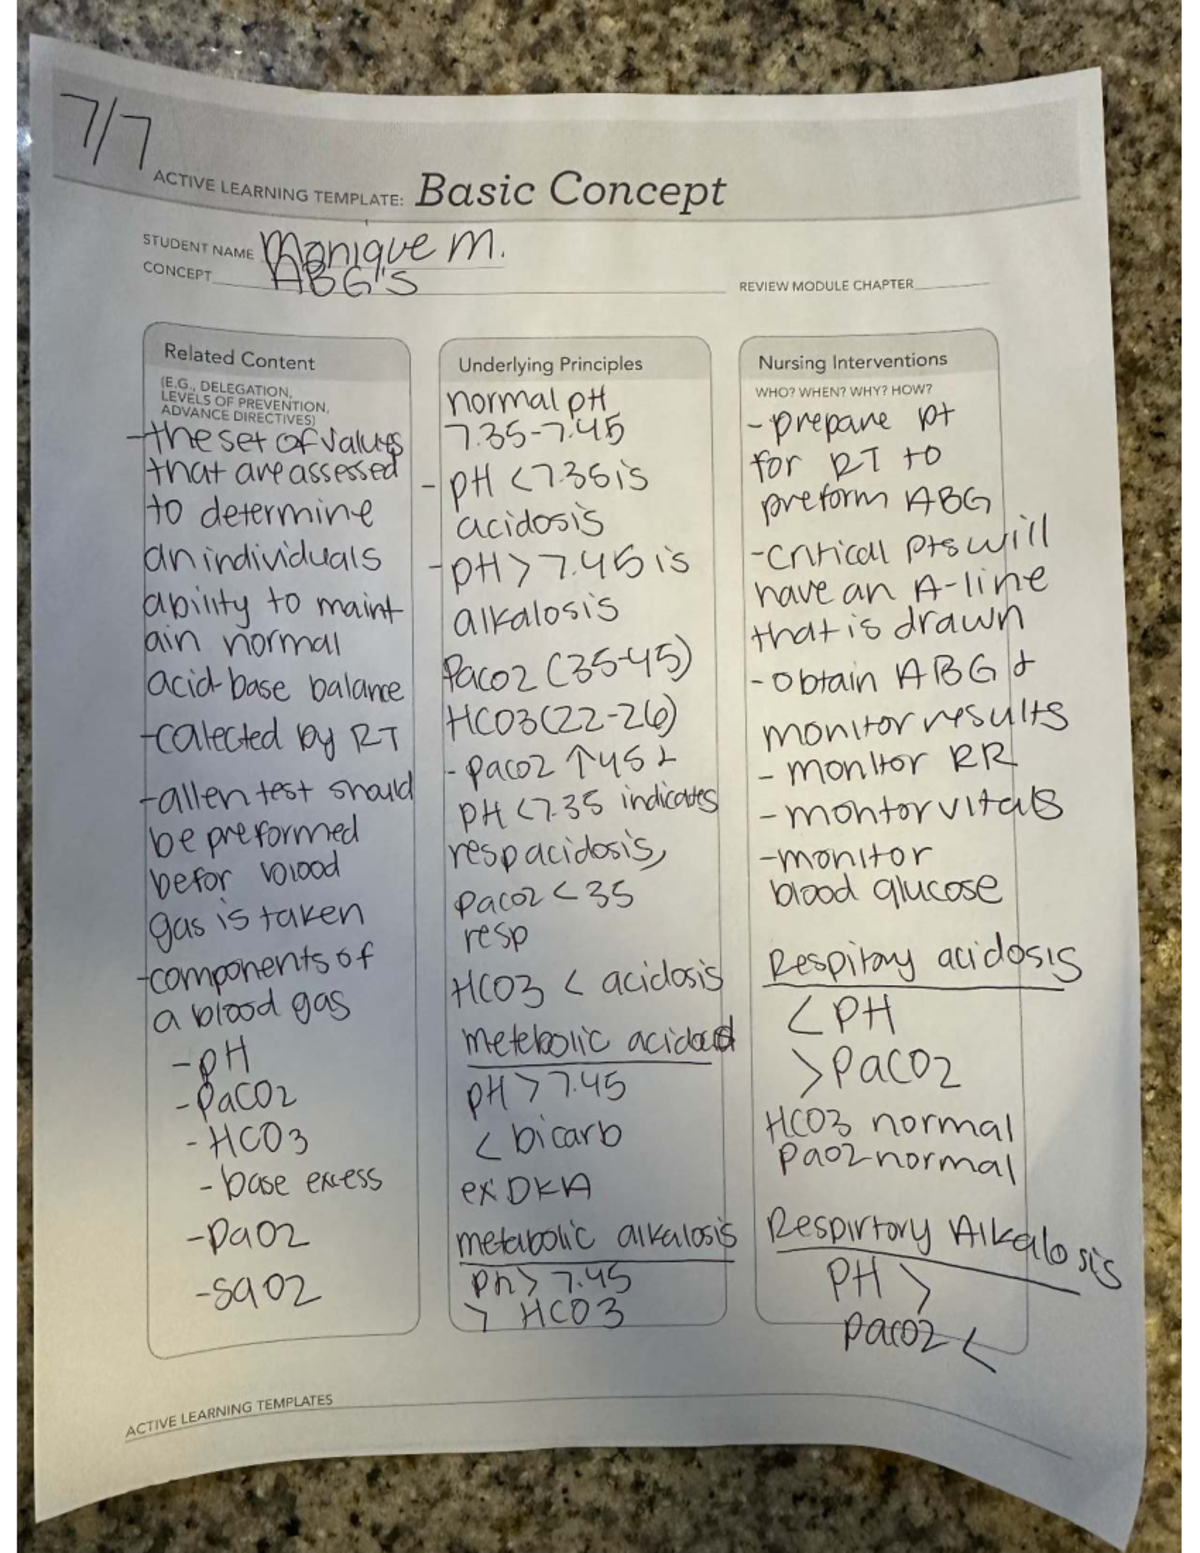 7/7
ACTIVE LEARNING TEMPLATE: Basic Concept
STUDENT NAME Monique M.
CONCEPT ABG'S
REVIEW MODULE CHAPTER
Related Content
(E.G., DELEGATION,
LEVELS OF PREVENTION,
ADVANCE DIRECTIVES)
-the set of values
that are assessed
to determine
an individuals
ability to maint
ain normal
acid-base balance
-calected by RT
-allen test should
be preformed
befor blood
gas is taken
-components of
a blood gas
-pH
-PaCO2
-HCO3
-base excess
-PaO2
-SaO2
Underlying Principles
normal pH
7.35-7.45
-pH <7.35 is
acidosis
-pH > 7.45 is
alkalosis
PacO2 (35-45)
HCO3 (22-26)
-paco2 ↑45 +
pH <7.35 indicates
resp acidosis,
paco2 < 35
resp
HCO3 < acidosis
metebolic
pH > 7.45
< bicarb
ex DKA
metabolic alkalosis
ph > 7.45
> HCO3
Nursing Interventions
WHO? WHEN? WHY? HOW?
-prepare pt
for RT to
preform ABG
-critical pts will
have an A-line
that is drawn
-obtain ABG +
monitor results
-monitor RR
-montor vitals
-monitor
blood glucose
Respitory acidosis
< PH
> PaCO2
HCO3 normal
PaO2 normal
Respirtory Alkalosis
PH >
paco2 <
ACTIVE LEARNING TEMPLATES